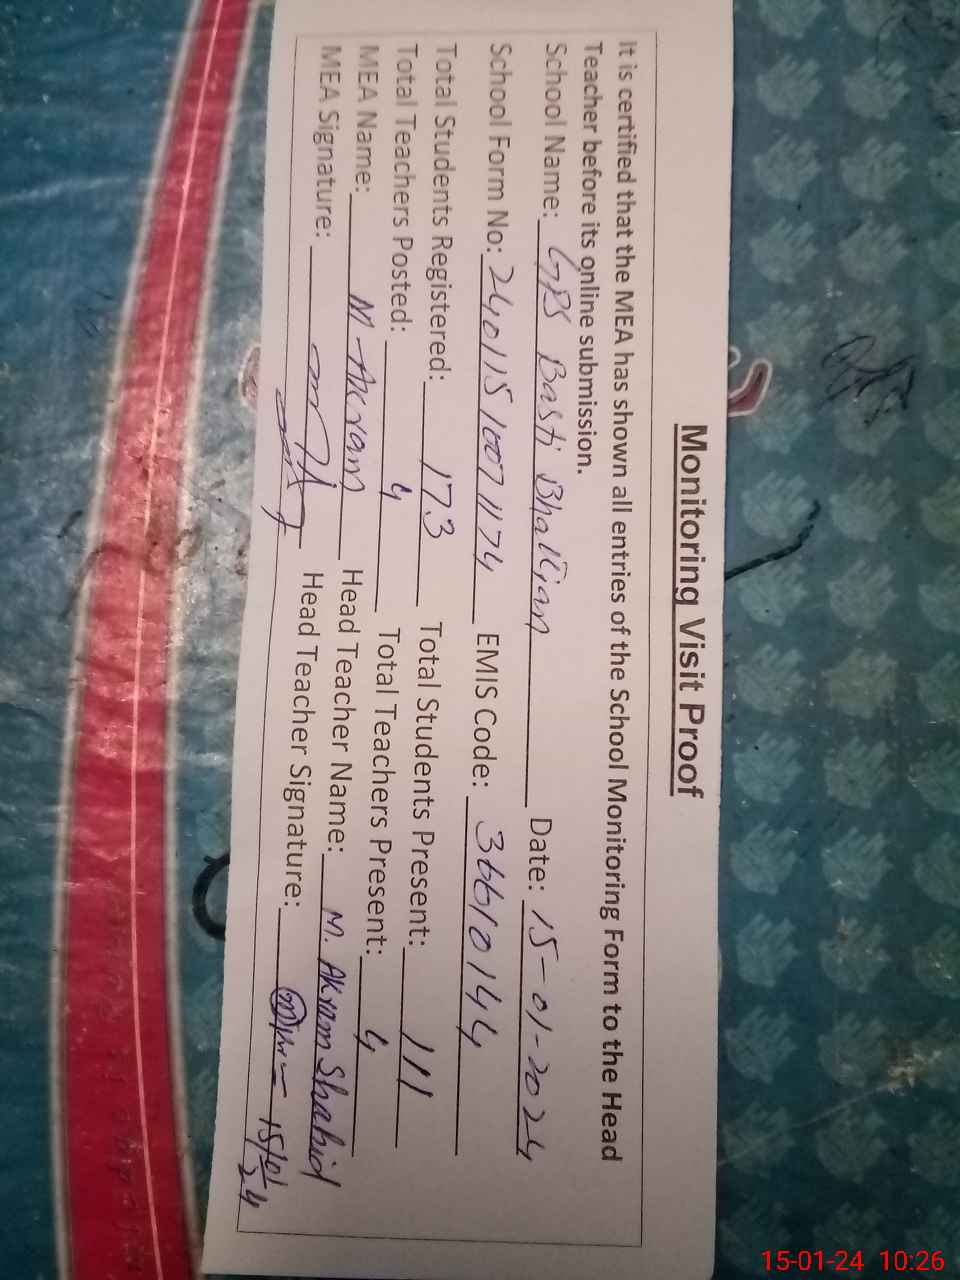 Monitoring Visit Proof
It is certified that the MEA has shown all entries of the School Monitoring Form to the Head
Teacher before its online submission.
School Name: GPS Basti Bhallian Date: 15-01-2024
School Form No: 2401151007 1174 EMIS Code: 36610144
Total Students Registered: 173 Total Students Present: 111
Total Teachers Posted: 4 Total Teachers Present: 4
MEA Name: M. Akram Head Teacher Name: M. Akram Shahid
MEA Signature: Head Teacher Signature: 15/01/24
15-01-24 10:26